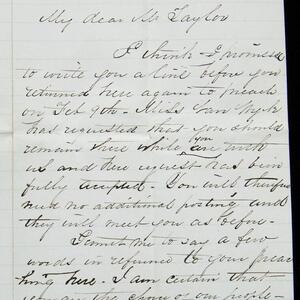 My dear Mr Taylor
I think I promised
to write you a line before you
returned here again to preach
on Feb 9th. Miss Van Wyck
has requested that you should
remain here while you are with
us and her request has been
fully accepted. You will therefore
need no additional posting and
they will meet you as before.
Permit me to say a few
words in reference to your preac
hing here. I am certain that
you are the choice of our people